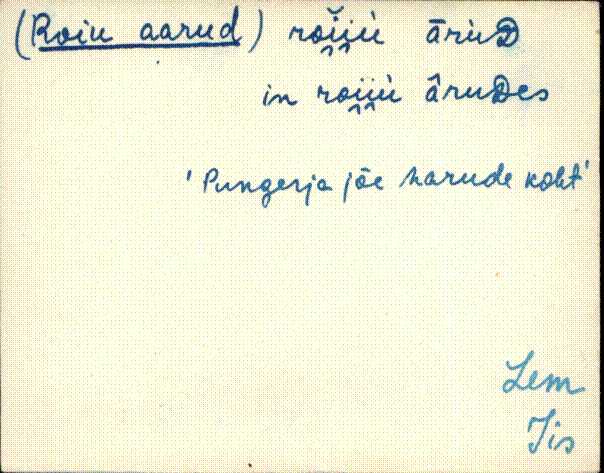 (Roiu aarud) roi̯i̯ù āruD
in roi̯i̯ù âruDes
'Pungerja jõe harude koht'
Lem
Jis